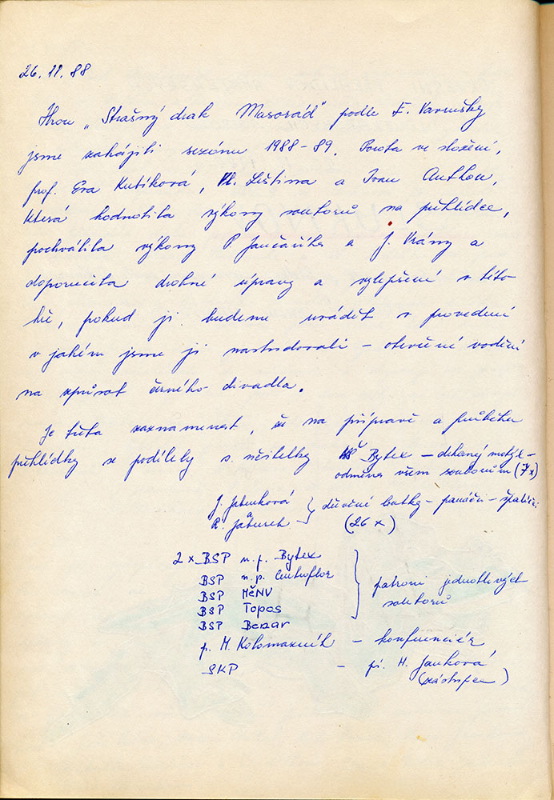 26. 11. 88
Hrou „Strašný drak Masorád" podle F. Vavrušky
jsme zahájili sezónu 1988-89. Porota ve složení,
prof. Eva Kubíková, Leština a Ivan Antloc,
která hodnotila výkony souborů na přehlídce,
pochválila výkony P. Jančaříka a J. Vrány a
doporučila drobné úpravy a vylepšení v této
hře, pokud ji budeme uvádět v provedení
v jakém jsme ji nastudovali – otevřené vodění
na způsob černého divadla.
Je třeba zaznamenat, že na přípravě a průběhu
přehlídky se podílely s. učitelky Bytex – dekaný
odměna všem souborům (7x)
J.
R. } dřevěné – panáčci –
(26 x)
2 x BSP n. p. Bytex
BSP n. p. Centroflor
BSP MěNV
BSP Topos
BSP Benar
} patroni jednotlivých
souborů
p. M. Kolomazník – konferenciér
SKP – pí. H. Janková